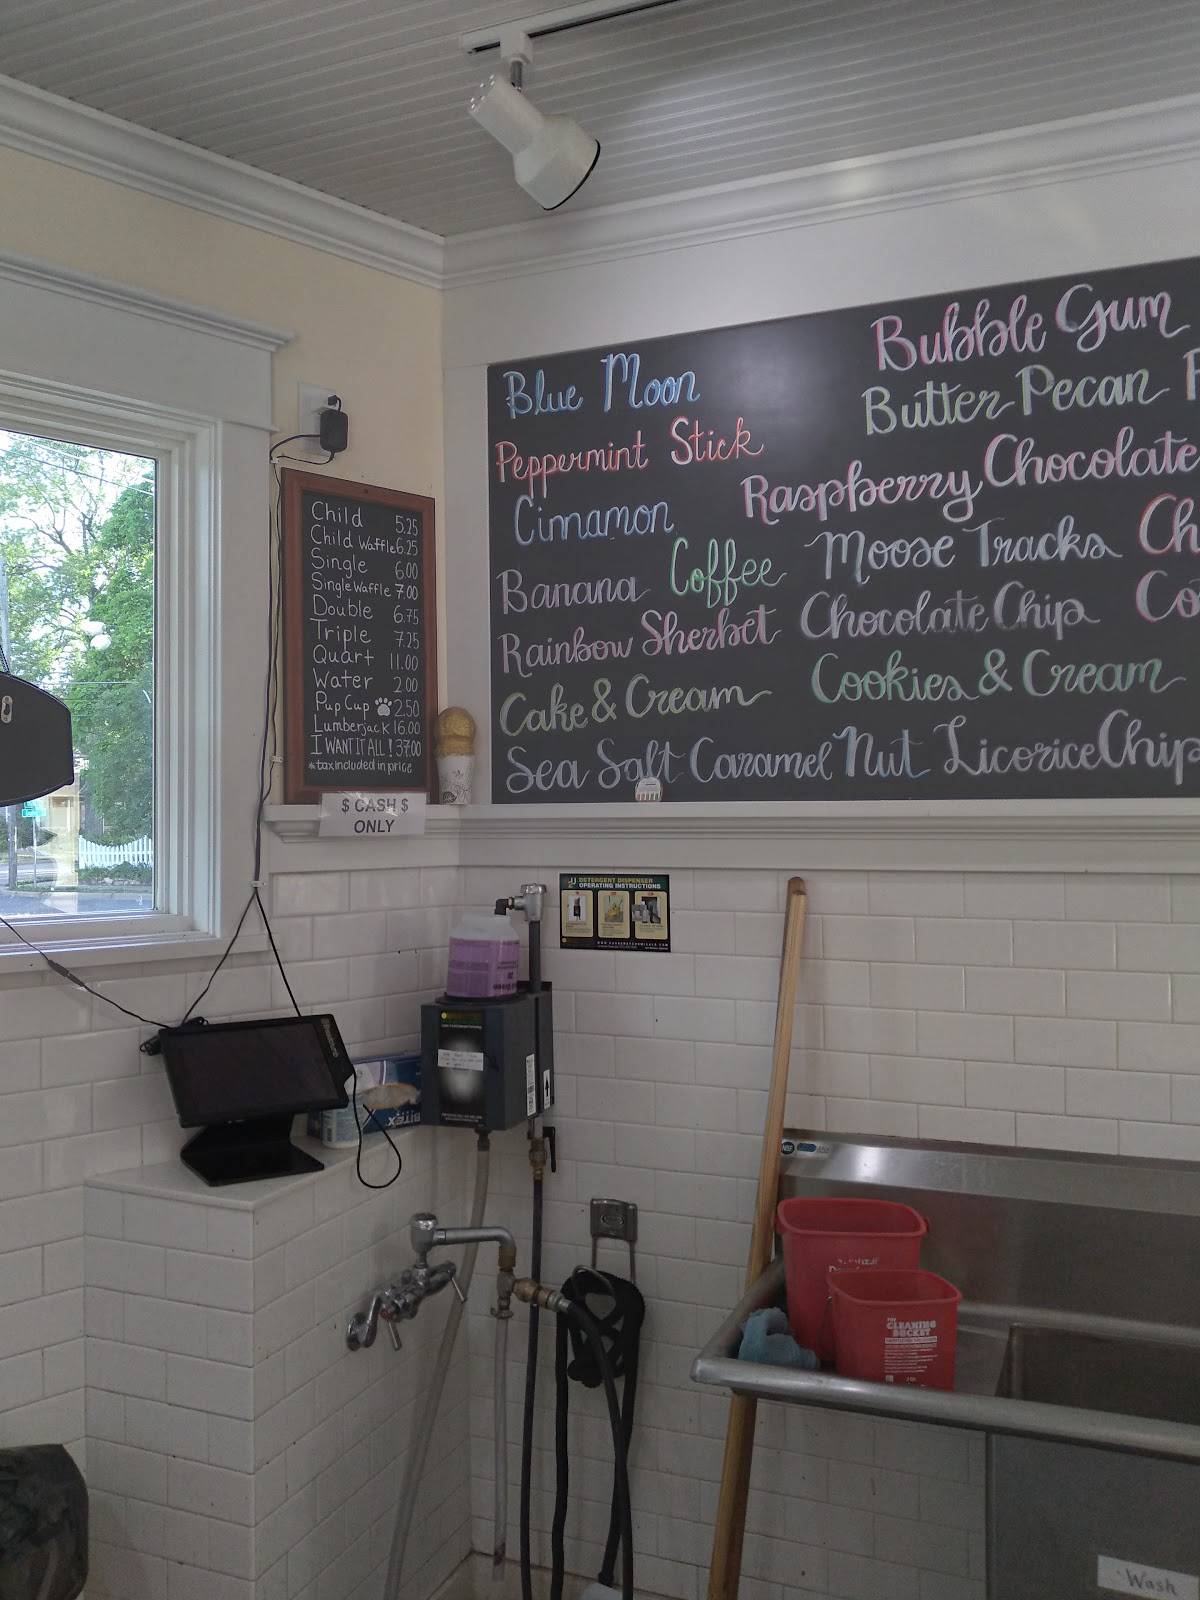 Bubble Gum
Blue Moon
Butter Pecan
Peppermint Stick
Raspberry Chocolate
Cinnamon
Moose Tracks
Banana Coffee
Chocolate Chip
Rainbow Sherbet
Cookies & Cream
Cake & Cream
Sea Salt Caramel Nut Licorice Chip
Child 5.25
Child Waffle 6.25
Single 6.00
Single Waffle 7.00
Double 6.75
Triple 7.25
Quart 11.00
Water 2.00
Pup Cup 2.50
Lumberjack 16.00
I WANT IT ALL! 37.00
*tax included in price
$ CASH $
ONLY
DETERGENT DISPENSER
OPERATING INSTRUCTIONS
CLEANING
BUCKET
Wash